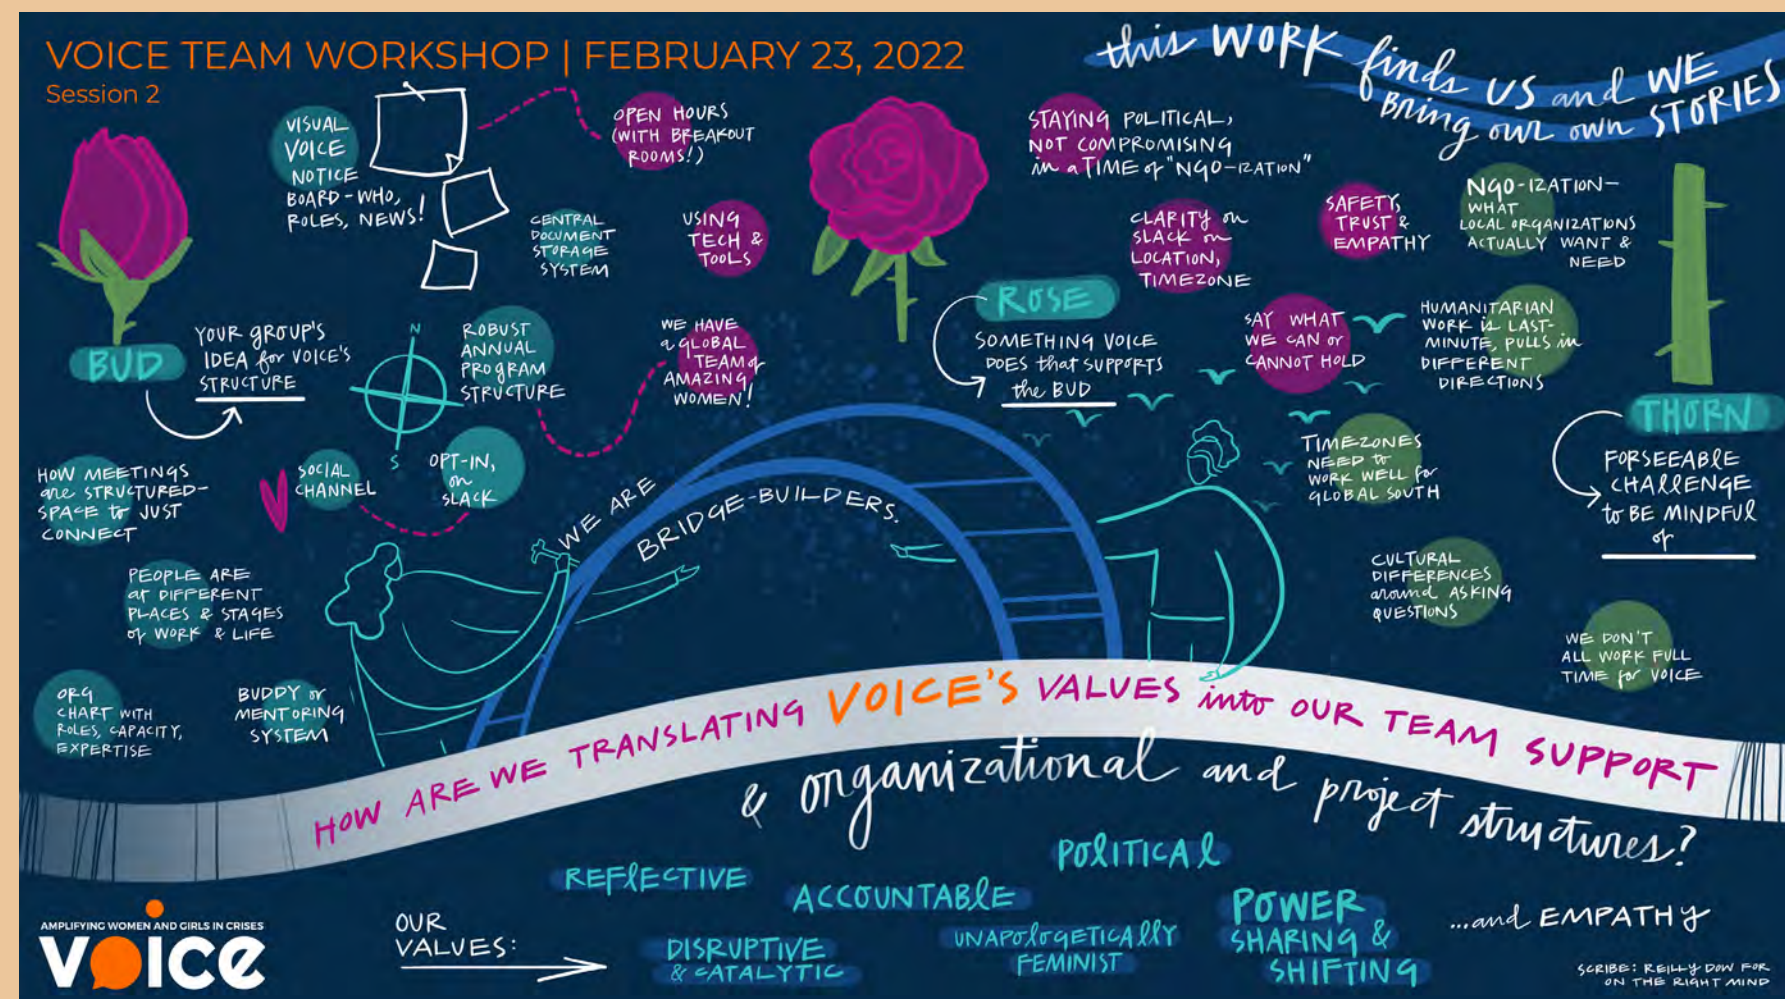 VOICE TEAM WORKSHOP | FEBRUARY 23, 2022
Session 2
this WORK finds US and WE
BRING our own STORIES
VISUAL
VOICE
NOTICE
BOARD-WHO,
ROLES, NEWS!
OPEN HOURS
(WITH BREAKOUT
ROOMS!)
CENTRAL
DOCUMENT
STORAGE
SYSTEM
USING
TECH &
TOOLS
BUD
YOUR GROUP'S
IDEA for VOICE'S
STRUCTURE
N
S
ROBUST
ANNUAL
PROGRAM
STRUCTURE
WE HAVE
a GLOBAL
TEAM of
AMAZING
WOMEN!
HOW MEETINGS
are STRUCTURED-
SPACE to JUST
CONNECT
SOCIAL
CHANNEL
OPT-IN,
on
SLACK
PEOPLE ARE
at DIFFERENT
PLACES & STAGES
of WORK & LIFE
ORG
CHART WITH
ROLES, CAPACITY,
EXPERTISE
BUDDY or
MENTORING
SYSTEM
WE ARE
BRIDGE-BUILDERS.
STAYING POLITICAL,
NOT COMPROMISING
in a TIME of "NGO-IZATION"
CLARITY on
SLACK on
LOCATION,
TIMEZONE
SAFETY,
TRUST &
EMPATHY
ROSE
SOMETHING VOICE
DOES that SUPPORTS
the BUD
SAY WHAT
WE CAN or
CANNOT HOLD
NGO-IZATION-
WHAT
LOCAL ORGANIZATIONS
ACTUALLY WANT &
NEED
HUMANITARIAN
WORK is LAST-
MINUTE, PULLS in
DIFFERENT
DIRECTIONS
THORN
FORSEEABLE
CHALLENGE
to BE MINDFUL
of
TIMEZONES
NEED to
WORK WELL for
GLOBAL SOUTH
CULTURAL
DIFFERENCES
around ASKING
QUESTIONS
WE DON'T
ALL WORK FULL
TIME for VOICE
HOW ARE WE TRANSLATING VOICE'S VALUES into OUR TEAM SUPPORT
& organizational and project structures?
OUR
VALUES:
REFLECTIVE
DISRUPTIVE
& CATALYTIC
ACCOUNTABLE
UNAPOLOGETICALLY
FEMINIST
POLITICAL
POWER
SHARING &
SHIFTING
...and EMPATHY
AMPLIFYING WOMEN AND GIRLS IN CRISES
VOICE
SCRIBE: REILLY DOW FOR
ON THE RIGHT MIND